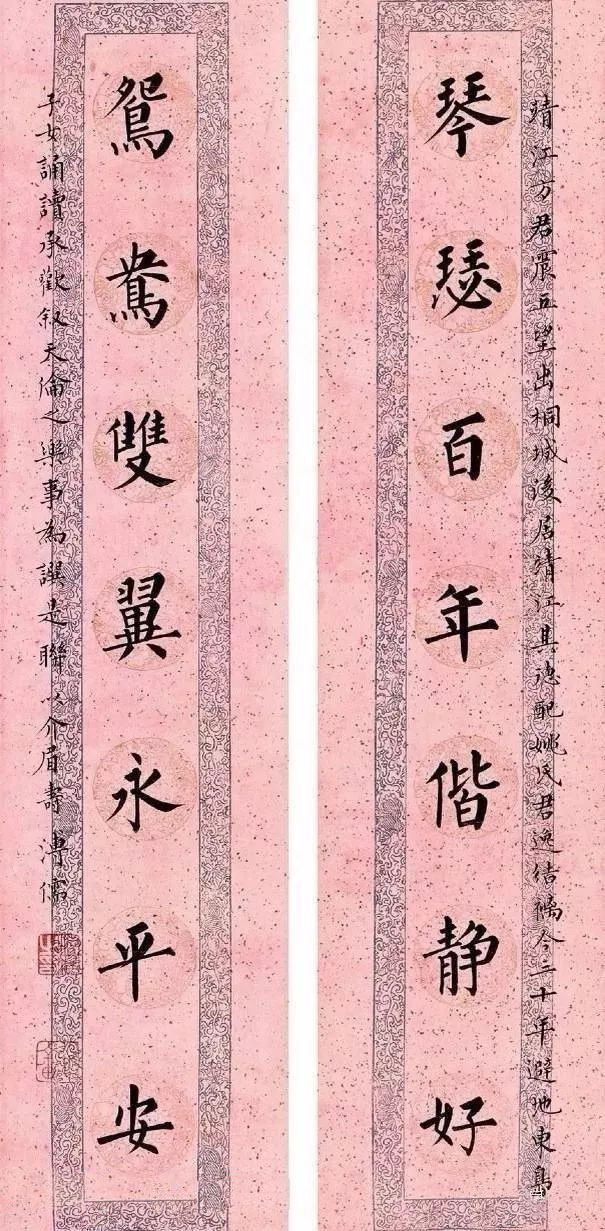 靖江方君震五望出桐城後居清江其德配姚氏君逸結褵今三十年避地東島
琴瑟百年偕静好
鴛鴦雙翼永平安
子女誦讀承歡叙天倫之樂事為譔是聯以介眉壽 溥儒